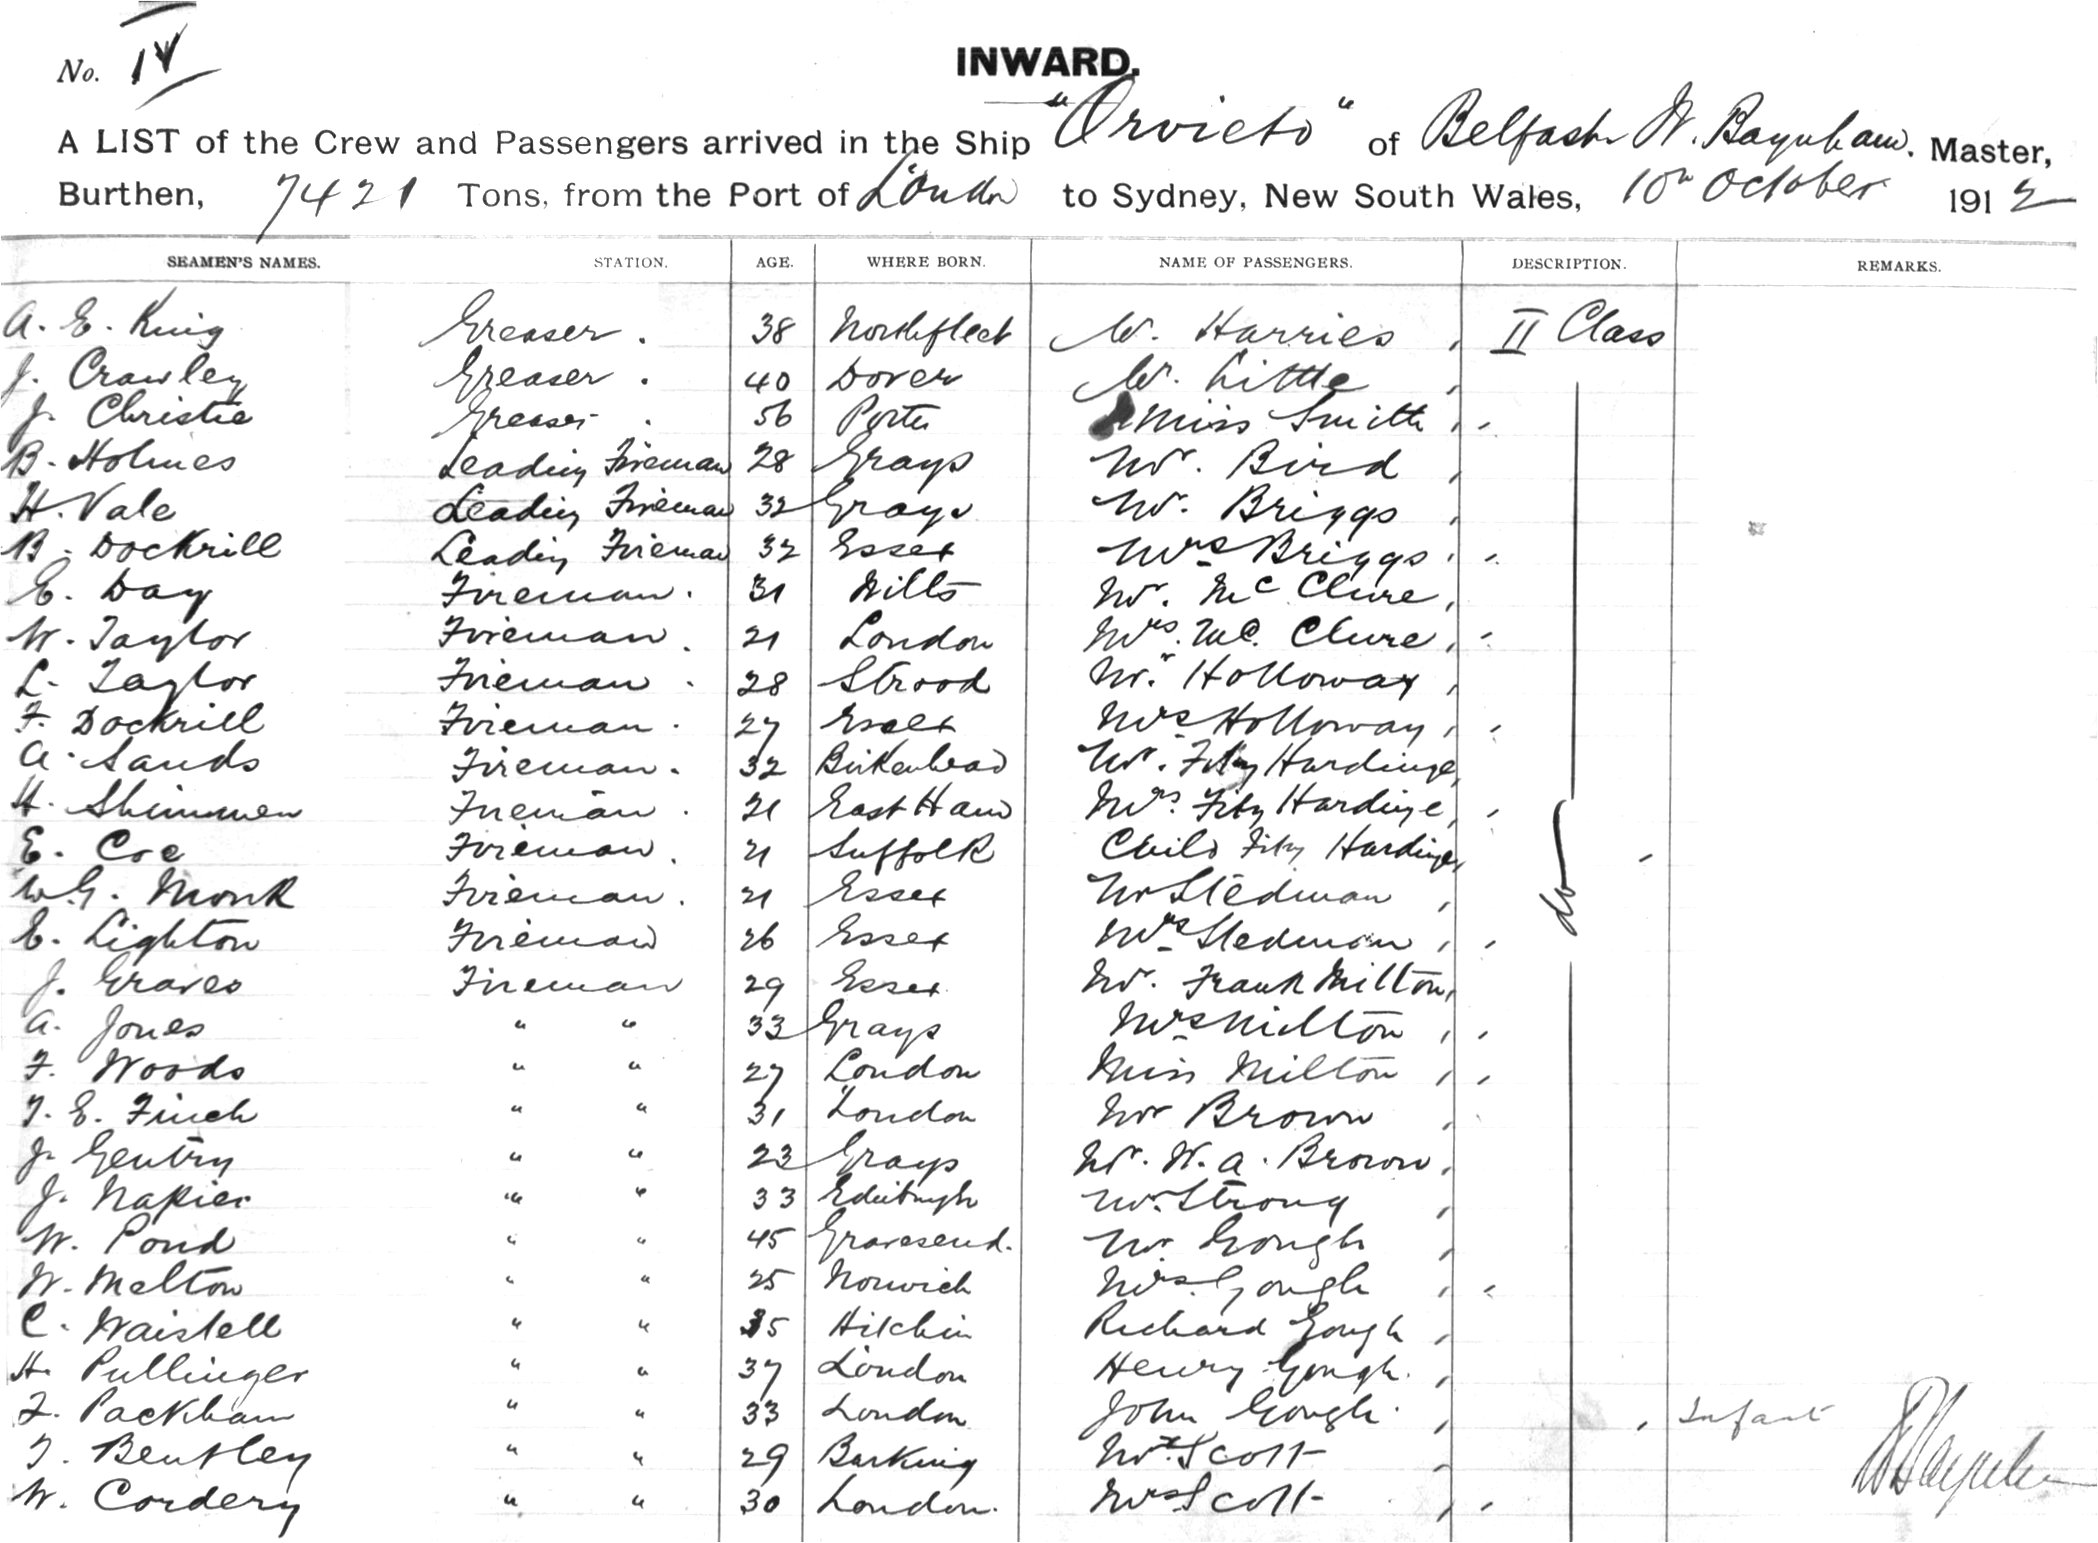 No. IV
INWARD.
A LIST of the Crew and Passengers arrived in the Ship "Orvieto" of Belfast W. Baynham. Master,
Burthen, 7421 Tons, from the Port of London to Sydney, New South Wales, 10th October 1912
SEAMEN'S NAMES. STATION. AGE. WHERE BORN. NAME OF PASSENGERS. DESCRIPTION. REMARKS.
A. E. King Greaser. 38 Northfleet Mr. Harries , II Class
J. Crawley Greaser. 40 Dover Mr. Little ,
J. Christie Greaser. 56 Miss Smith , ,
B. Holmes Leading Fireman 28 Grays Mr. Bird ,
H. Vale Leading Fireman 32 Grays Mr. Briggs ,
B. Dockrill Leading Fireman 32 Essex Mrs Briggs , ,
E. Day Fireman. 31 Wilts Mr. McClure ,
W. Taylor Fireman. 21 London Mrs. McClure , ,
L. Taylor Fireman. 28 Strood Mr. Holloway ,
F. Dockrill Fireman. 27 Essex Mrs Holloway , ,
A. Sands Fireman. 32 Birkenhead Mr. Fitz Hardinge ,
H. Shimmen Fireman. 21 East Ham Mrs Fitz Hardinge , ,
E. Coe Fireman. 21 Suffolk Child Fitz Hardinge , do ,
W. G. Monk Fireman. 21 Essex Mr Stedman ,
E. Lighton Fireman 26 Essex Mrs Stedman , ,
J. Graves Fireman 29 Essex Mr. Frank Milton ,
A. Jones " " 33 Grays Mrs Milton , ,
F. Woods " " 27 London Miss Milton , ,
T. E. Finch " " 31 London Mr Brown ,
J. Gentry " " 23 Grays Mr. W. A. Brown ,
J. Napier " " 33 Edinburgh Mr. Strong ,
W. Pond " " 45 Gravesend. Mr Gough ,
W. Melton " " 25 Norwich Mrs. Gough , ,
C. Waistell " " 35 Hitchin Richard Gough ,
H. Pullinger " " 37 London Henry Gough. ,
F. Packham " " 33 London John Gough. , , Infant
T. Bentley " " 29 Barking Mr. Scott , W Baynham
W. Cordery " " 30 London. Mrs Scott , ,